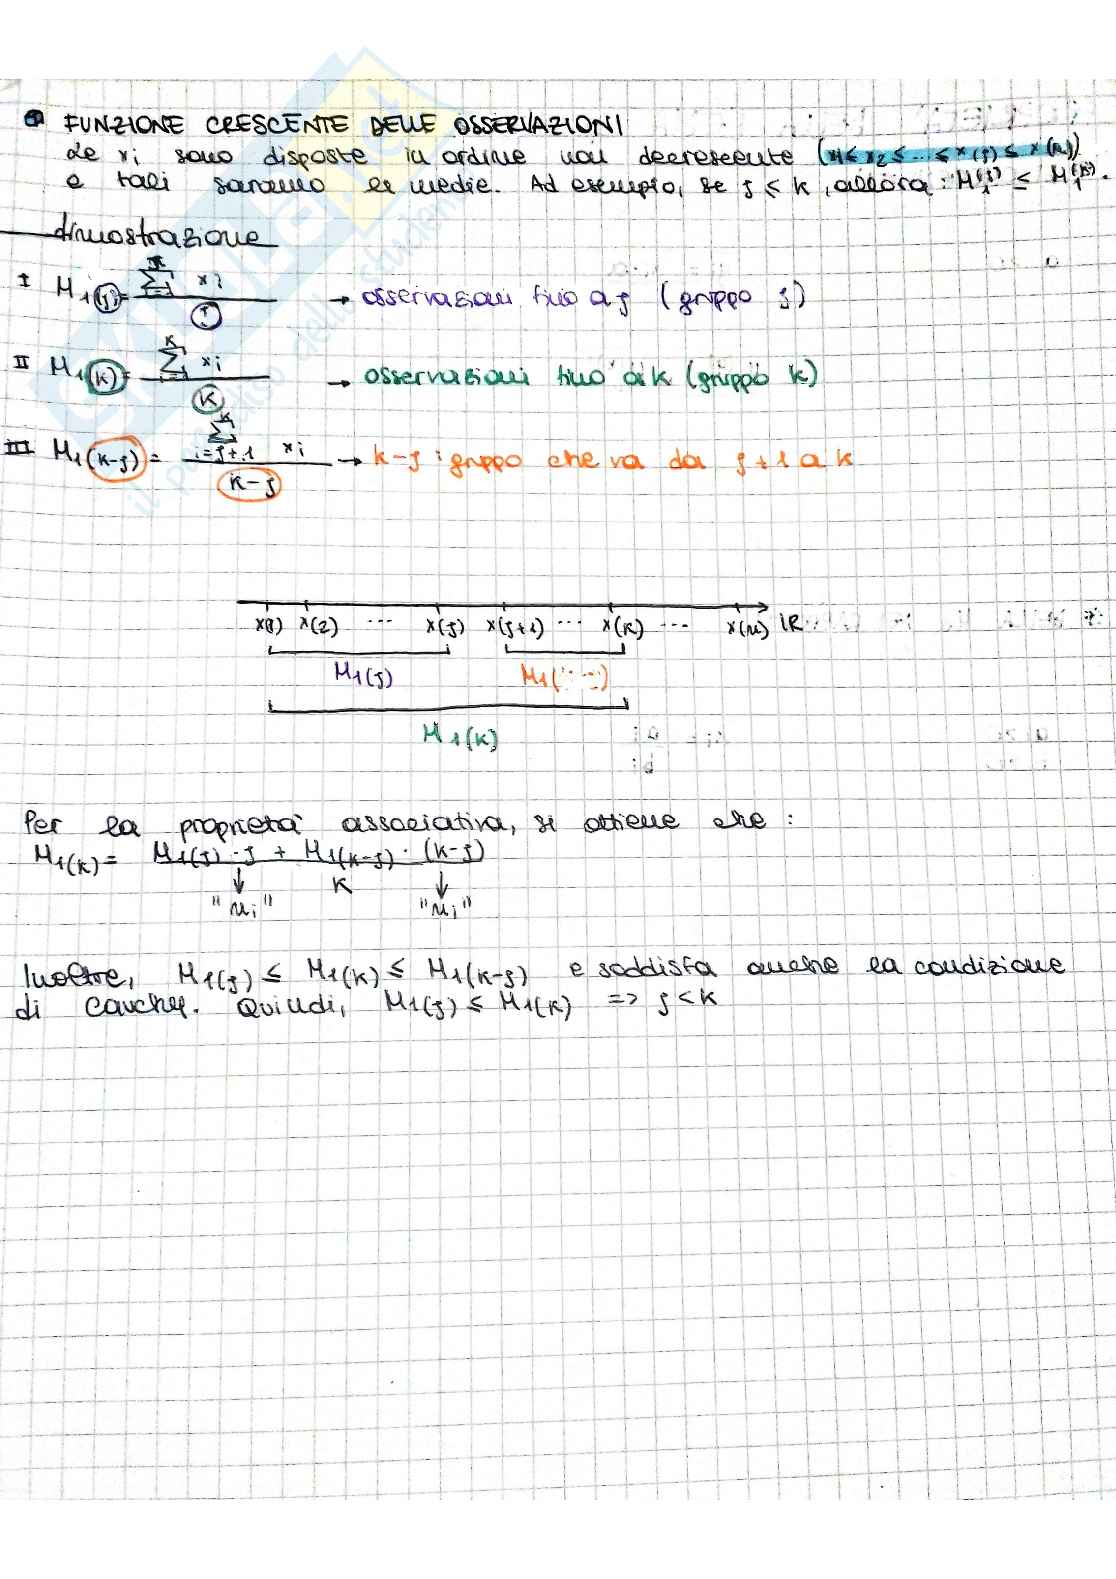 FUNZIONE CRESCENTE DELLE OSSERVAZIONI
Le xi sono disposte in ordine non decrescente (x1 ≤ x2 ≤ ... ≤ x(j) ≤ x(n))
e tali saranno le medie. Ad esempio, se j < k, allora: M1(j) ≤ M1(k).
dimostrazione
I M1(j) = Σ xi / j → osservazioni fino a j (gruppo j)
II M1(k) = Σ k xi / k → osservazioni fino a k (gruppo k)
III M1(k-j) = Σ k i=j+1 xi / k-j → k-j : gruppo che va da j+1 a k
x(1) x(2) ... x(j) x(j+1) ... x(k) ... x(n) IR
M1(j) M1(
M1(k)
Per la proprietà associativa, si ottiene che:
M1(k) = M1(j) · j + M1(k-j) · (k-j)
k
"ni" "ni"
Inoltre, M1(j) ≤ M1(k) ≤ M1(k-j) e soddisfa anche la condizione
di Cauchy. Quindi, M1(j) ≤ M1(k) => j < k